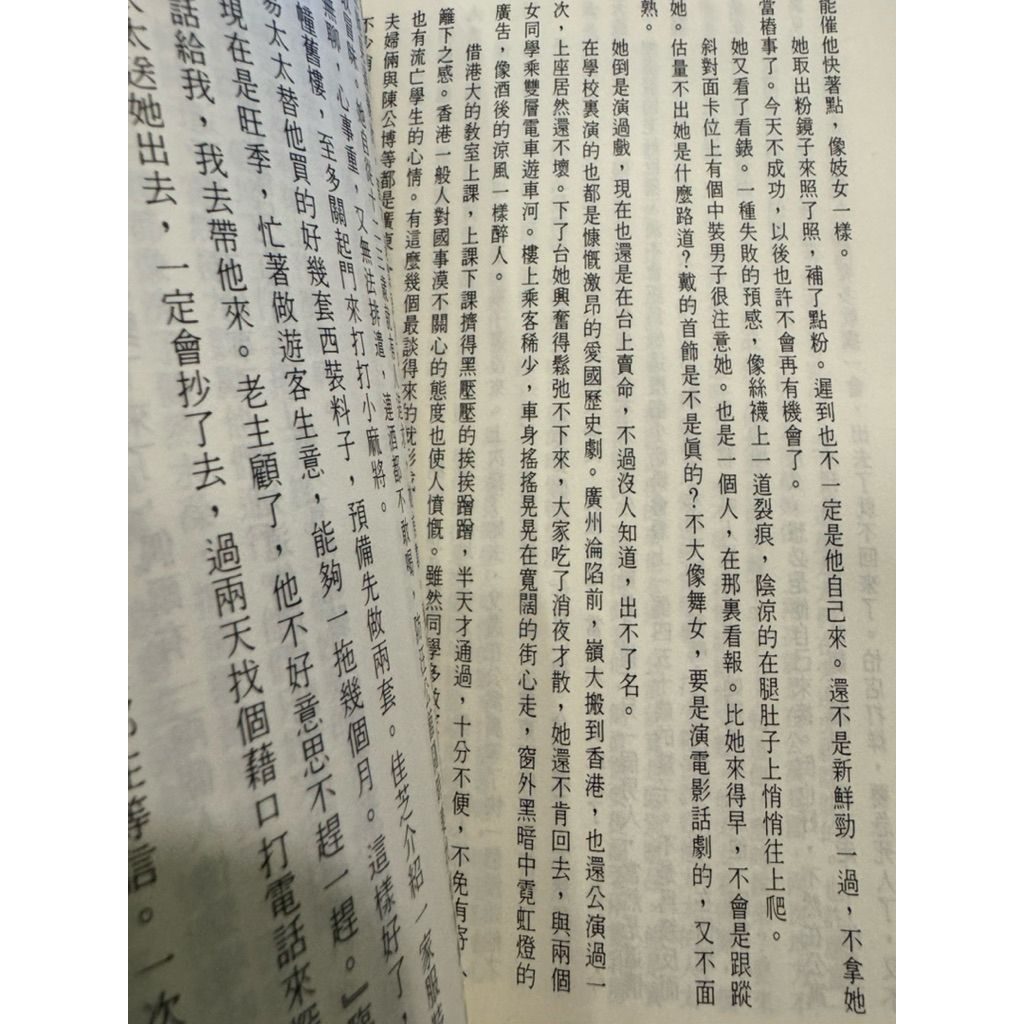 能催他快著點，像妓女一樣。
她取出粉鏡子來照了照，補了點粉。遲到也不一定是他自己來。還不是新鮮勁一過，不拿她
當樁事了。今天不成功，以後也許不會再有機會了。
她又看了看錶。一種失敗的預感，像絲襪上一道裂痕，陰涼的在腿肚子上悄悄往上爬。
斜對面卡位上有個中裝男子很注意她。也是一個人，在那裏看報。比她來得早，不會是跟蹤
她。估量不出她是什麼路道？戴的首飾是不是眞的？不大像舞女，要是演電影話劇的，又不面
熟。
她倒是演過戲，現在也還是在台上賣命，不過沒人知道，出不了名。
在學校裏演的也都是慷慨激昂的愛國歷史劇。廣州淪陷前，嶺大搬到香港，也還公演過一
次，上座居然還不壞。下了台她興奮得鬆弛不下來，大家吃了消夜才散，她還不肯回去，與兩個
女同學乘雙層電車遊車河。樓上乘客稀少，車身搖搖晃晃在寬闊的街心走，窗外黑暗中霓虹燈的
廣告，像酒後的涼風一樣醉人。
借港大的教室上課，上課下課擠得黑壓壓的挨挨蹭蹭，半天才通過，十分不便，不免有寄人
籬下之感。香港一般人對國事漠不關心的態度也使人憤慨。雖然同學多數
也有流亡學生的心情。有這麼幾個最談得來的
夫婦倆與陳公博等都是廣東人
連酒都不敢喝，
無聊，心事重，又無法排遣，
幢舊樓，至多關起門來打打小麻將。
易太太替他買的好幾套西裝料子，預備先做兩套。佳芝介紹一家服裝
現在是旺季，忙著做遊客生意，能夠一拖幾個月。這樣好了，
話給我，我去帶他來。老主顧了，他不好意思不趕一趕。』臨
太太送她出去，一定會抄了去，過兩天找個藉口打電話來探
在等信。一次